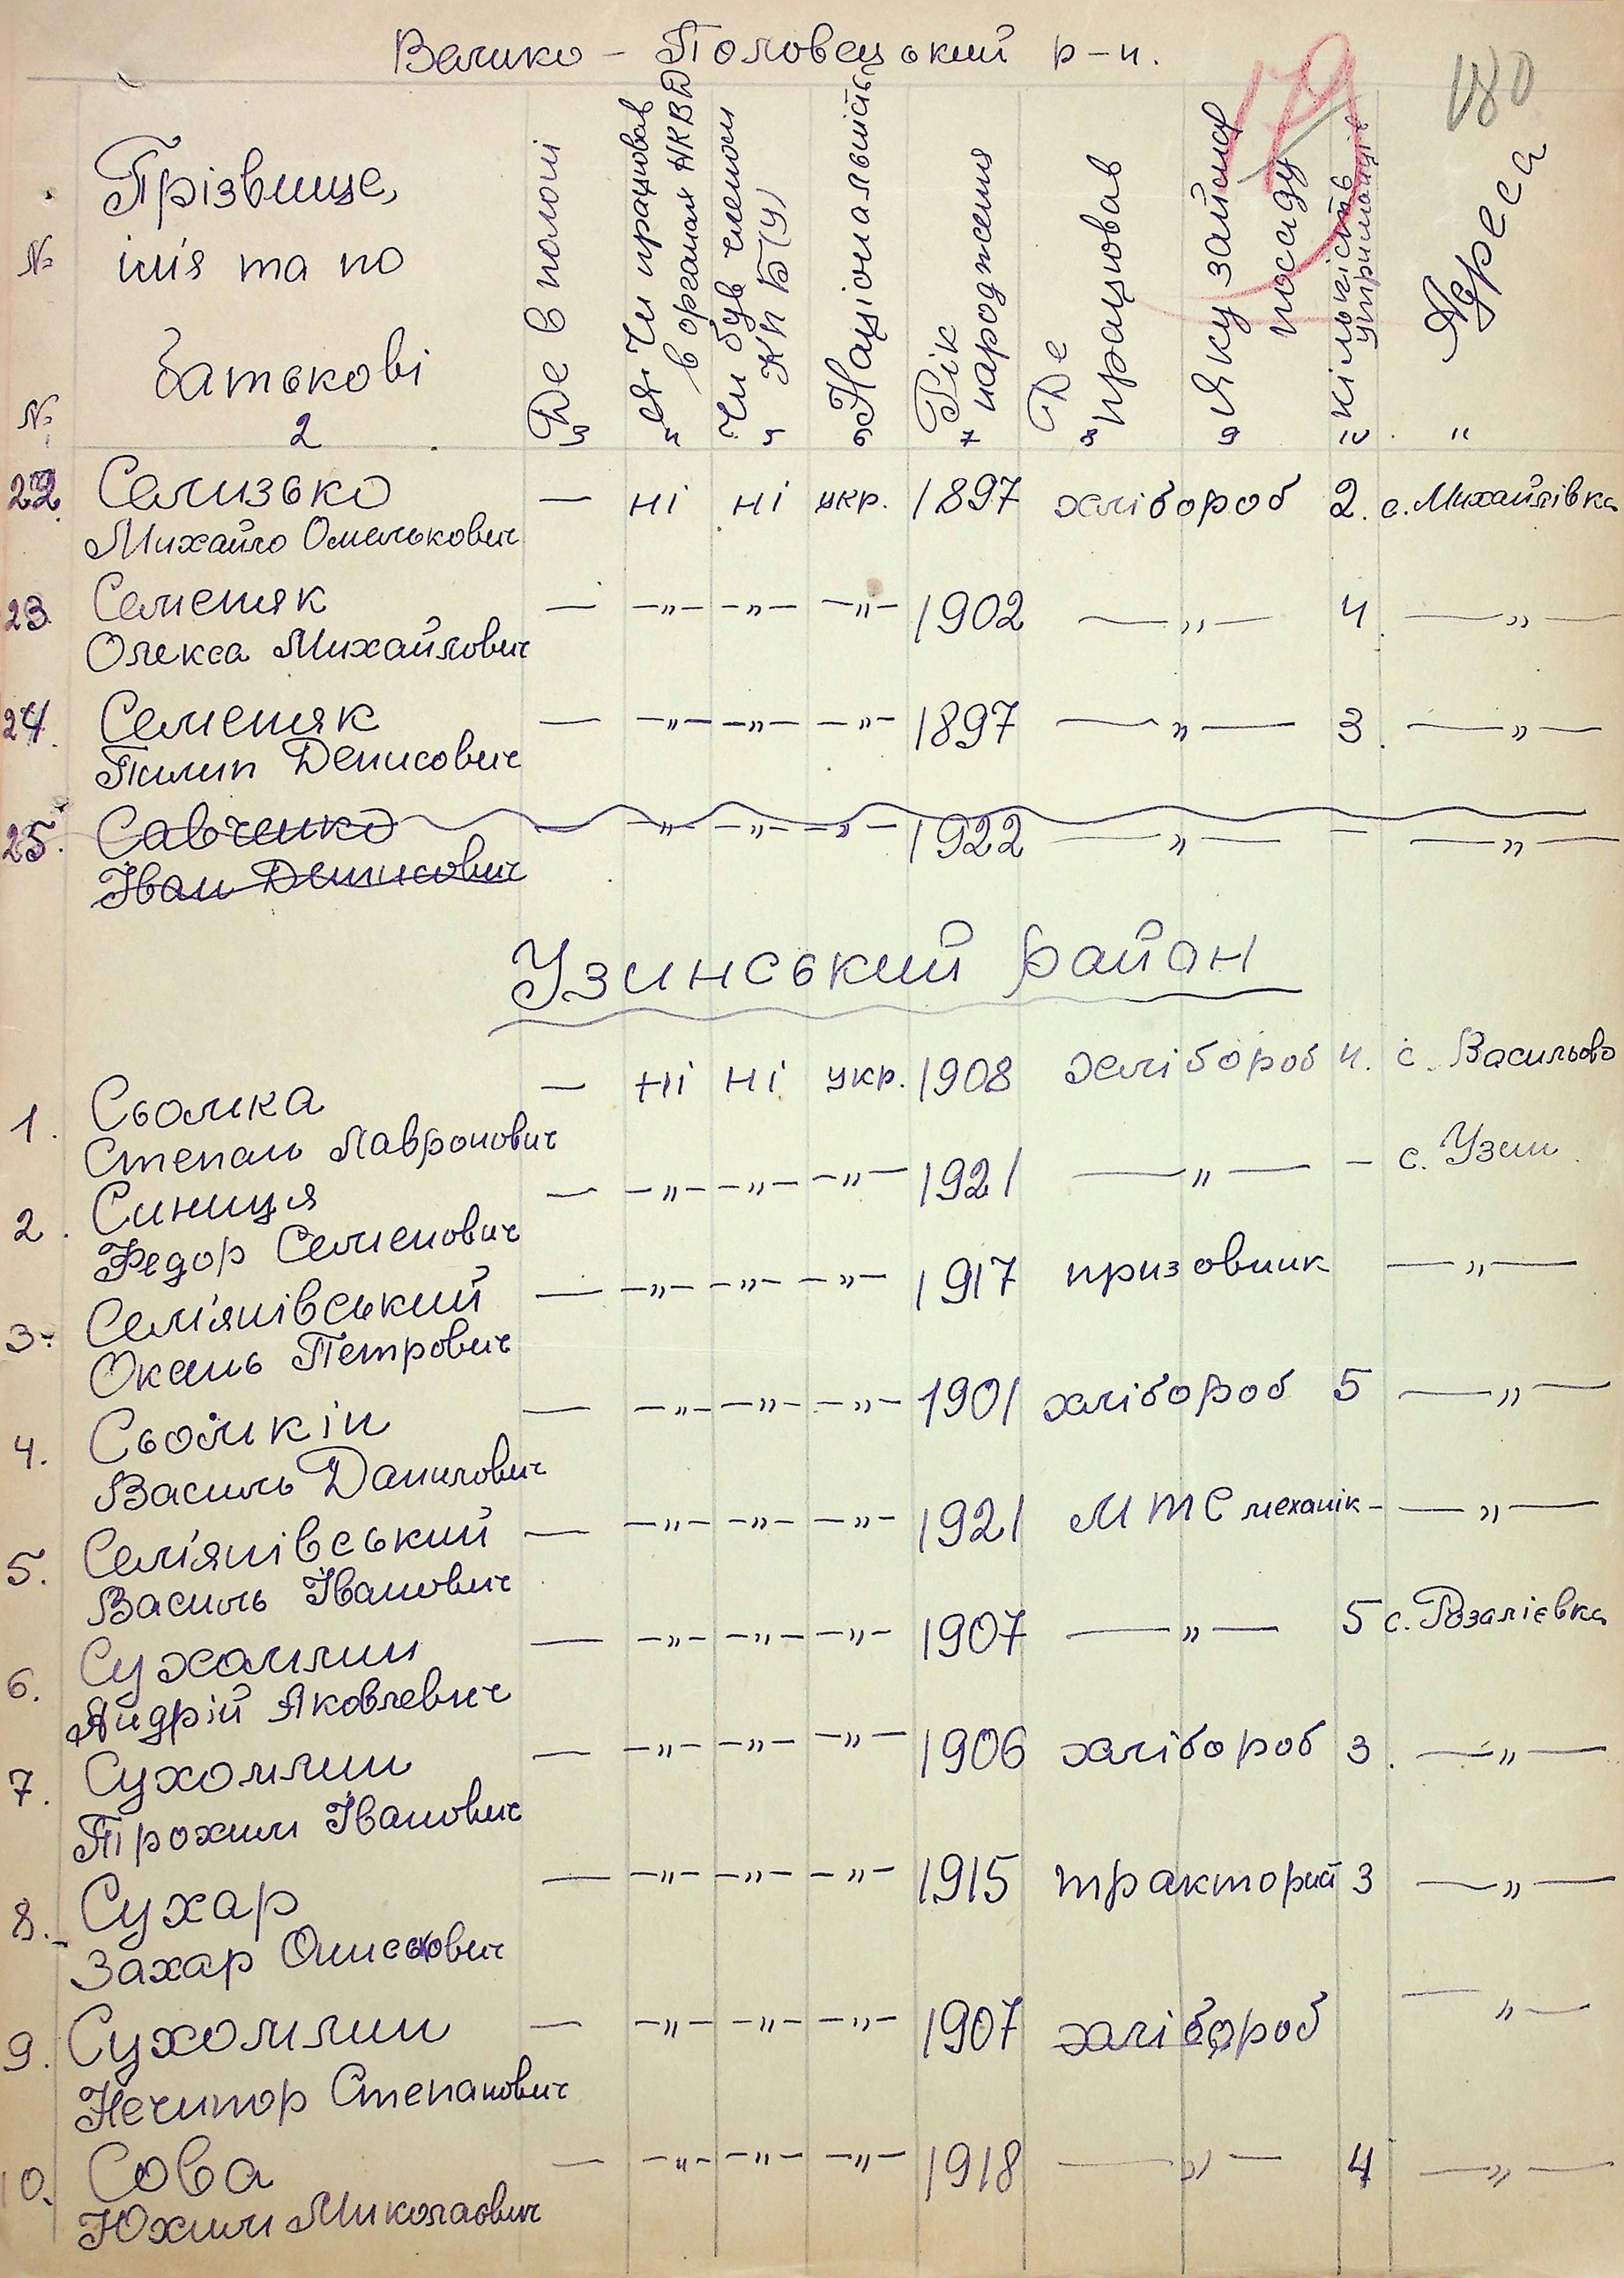 Велико - Половецький р-н.
179
180
№ Прізвище, імя та по батькові
Де в полоні
Чи працював в органах НКВД
Чи був членом КПБ(У)
Національність
Рік народження
Де працював
Яку займав посаду
Кількість утриманців
Адреса
№ 2 3 4 5 6 7 8 9 10 11
22 Селизько — ні ні укр. 1897 хлібороб 2. с. Михайлівка
Михайло Омелькович
23. Семеняк — —„— —„— —„— 1902 —„— 4. —„—
Олекса Михайлович
24. Семеняк — —„— —„— —„— 1897 —„— 3. —„—
Пилип Денисович
25. Савченко — —„— —„— —„— 1922 —„— — —„—
Іван Денисович
Узинський район
1. Сьомка — ні ні укр. 1908 хлібороб 4. с. Васильово
Степань Лавронович
2. Синиця — —„— —„— —„— 1921 —„— — с. Узин
Федор Семенович
3. Сем'янівський — —„— —„— —„— 1917 призовник —„—
Петрович
4. Сьомкін — —„— —„— —„— 1901 хлібороб 5 —„—
Василь Данилович
5. Сем'янівський — —„— —„— —„— 1921 МТС механік — —„—
Василь Іванович
6. Сухомлин — —„— —„— —„— 1907 —„— 5 с. Розалієвка
Андрій Яковлевич
7. Сухомлин — —„— —„— —„— 1906 хлібороб 3. —„—
Трохим Іванович
8. Сухар — —„— —„— —„— 1915 тракторий 3 —„—
Захар Онискович
9. Сухомлин — —„— —„— —„— 1907 хлібороб —„—
Нечипор Степанович
10. Сова — —„— —„— —„— 1918 —„— 4 —„—
Юхим Миколаович